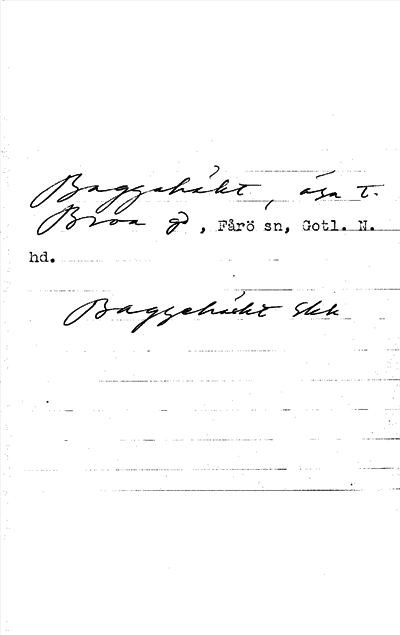 Baggahákt, åsn t.
Broa gd, Fårö sn, Gotl. N.
hd.
Baggehackt Skk